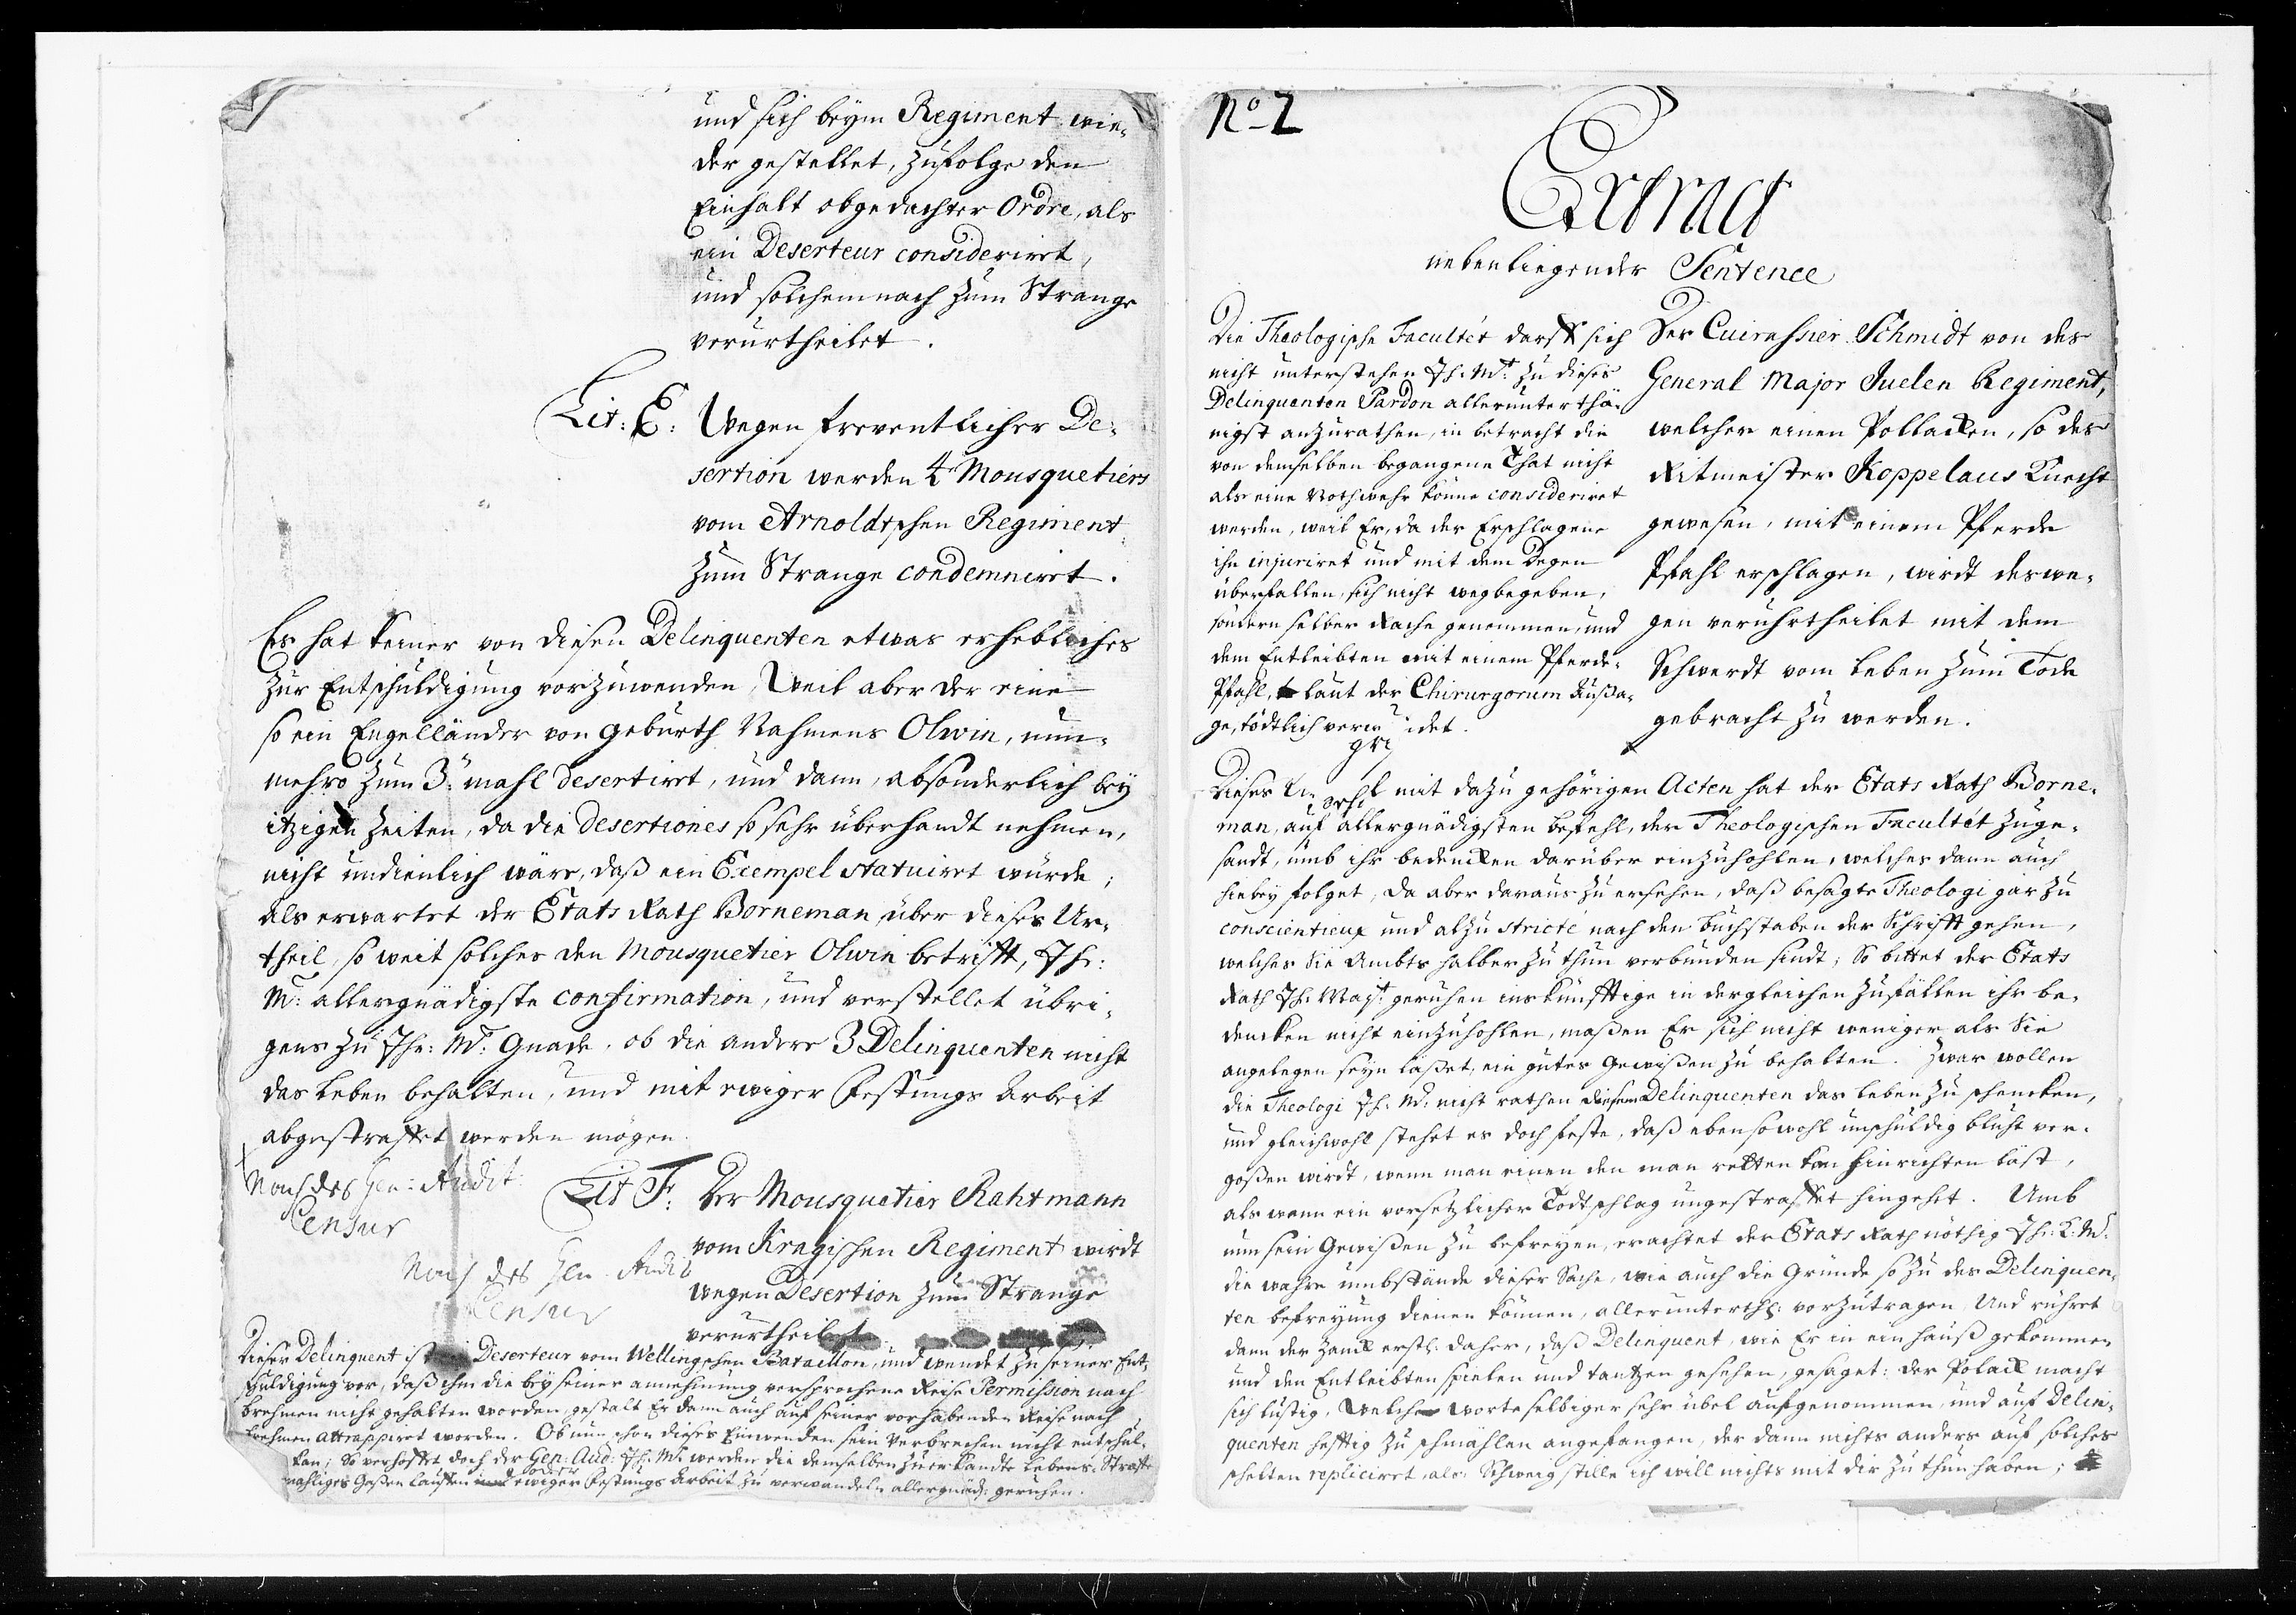 und sich beym Regiment wie-
der gestellet, zufolge den
Einhalt obgedachter Ordre, als
ein Deserteur consideriret,
und solchemnach zum Strange
verurtheilet.
Lit: E: Wegen freventlicher De-
sertion werden 4 Mousquetiers
vom Arnoldtschen Regiment
zum Strange condemniret.
Es hat keiner von diesen Delinquenten etwas erhebliches
zur Entschuldigung vorzuwenden, Weil aber der eine
so ein Engelländer von Geburth Nahmens Olwin, nun-
mehro zum 3. mahl desertiret, und dann, absonderlich bey
itzigen Zeiten, da die desertiones so sehr überhandt nehmen,
nicht undienlich wäre, daß ein Exempel statuiret würde;
als erwartet der Etats Rath Borneman über dieses Ur-
theil, so weit solches den Mousquetier Olwin betrifft, Ihr:
M: allergnädigste confirmation, und verstellet übri-
gens zu Ihr: M: Gnade, ob die andere 3 Delinquenten nicht
das Leben behalten, und mit ewiger Festungs Arbeit
abgestraffet werden mögen.
Nach des Gen: Audit:
Censur
Lit F: Der Mousquetier Rahtmann
vom Kragischen Regiment wirdt
wegen Desertion zum Strange
verurtheilet
Nach des Gen. Audit
Censur
Dieser Delinquent ist Deserteur vom Wellingschen Bataillon, und wendet zu seiner Ent-
schuldigung vor, daß ihm die bey seiner annehmung versprochene Reise Permission nach
Brehmen nicht gehalten worden, gestalt Er denn auch auf seiner vorhabenden Reise nach
Brehmen attrappiret worden. Ob nun schon dieses Einwenden sein Verbrechen nicht entschul-
kan; So verhoffet doch der Gen: Aud: Ihr. Mt. werden die demselben zuerkandte Lebens-Straffe
mahliges Gaßen lauffen ewiger Festungs Arbeit zu verwandeln allergnäd: geruhen.
No 2
Extract
nebenliegender Sentence
Die Theologische Facultét darff sich
nicht unterstehen Ih: Mt: zu dieses
Delinquenten Pardon allerunterthä-
nigst anzurathen, in betracht die
von demselben begangene That nicht
als eine Nothwehr könne consideriret
werden, weil Er, da der Erschlagene
ihn injuriret und mit dem Degen
überfallen, sich nicht wegbegeben,
sondern selber Rache genommen, und
dem Entleibten mit einem Pferde-
Pfahl, laut der Chirurgorum Außa-
ge, tödtlich verwundet.
Der Cuirassier Schmidt von des
General Major Juelen Regiment,
welcher einen Pollacken, so des
Ritmeister Koppelaus Knecht
gewesen, mit einem Pferde
Pfahl erschlagen, wirdt deswe-
gen veruhrtheilet mit dem
Schwerdt vom Leben zum Tode
gebracht zu werden.
Dieses mit dazu gehörigen Acten hat der Etats Rath Borne-
man, auf allergnädigsten befehl, der Theologischen Facultét zuge-
sandt, umb ihr bedencken darüber einzuhohlen, welches dann auch
hiebey folget, da aber daraus zu ersehen, daß besagte Theologi gar zu
conscientieux und alzu stricté nach den buchstaben der Schrifft gehen,
welches Sie Ambts halber zu thun verbunden sindt, So bittet der Etats
Rath Ih. Mayt. geruhen inskünfftige in dergleichen Zufällen ihr be-
dencken nicht einzuhohlen, maßen Er sich nicht weniger als Sie
angelegen seyn laßet, ein gutes Gewißen zu behalten. Zwar wollen
die Theologi Ih: M: nicht rathen diesem Delinquenten das Leben zu schencken,
und gleichwohl stehet es doch feste, daß eben sowohl unschuldig bluht ver-
goßen wirdt, wenn man einen den man retten kan hinrichten läst,
als wann ein vorsetzlicher Todtschlag ungestraffet hingehet. Umb
nun sein Gewißen zu befreyen, erachtet der Etats Rath nöthig Ihr: K: M:
die wahre umbstände dieser Sache, wie auch die Gründe so zu des Delinquen-
ten befreyung dienen können, allerunterth: vorzutragen, Und rühret
dann der Zanck erstl: daher, daß Delinquent, wie Er in ein hauß gekommen
und den Entleibten spielen und tantzen gesehen, gesaget: der Polack macht
sich lustig, Welche worte selbiger sehr übel aufgenommen, und auf Delin-
quenten hefftig zu schmählen angefangen, der dann nichts anders auf solches
schelten repliciret, als: Schweig stille ich will nichts mit dir zu thun haben;